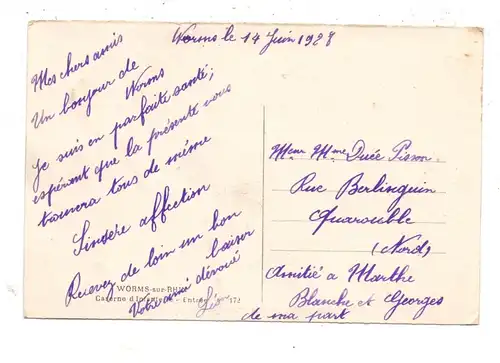 Worms le 14 Juin 1928
Mes chers amis
Un bonjour de
Worms
Je suis en parfaite santé;
espérant que la présente vous
trouvera tous de même
Sincère affection
Recevez de loin un bon
baiser
Votre ami dévoué
Léon
WORMS-sur-RHIN
Caserne d'Infanterie - Entrée 172
Mr et Mme Durée Pisson
Rue Berlinguin
Quarouble
(Nord)
Amitié à Marthe
Blanche et Georges
de ma part